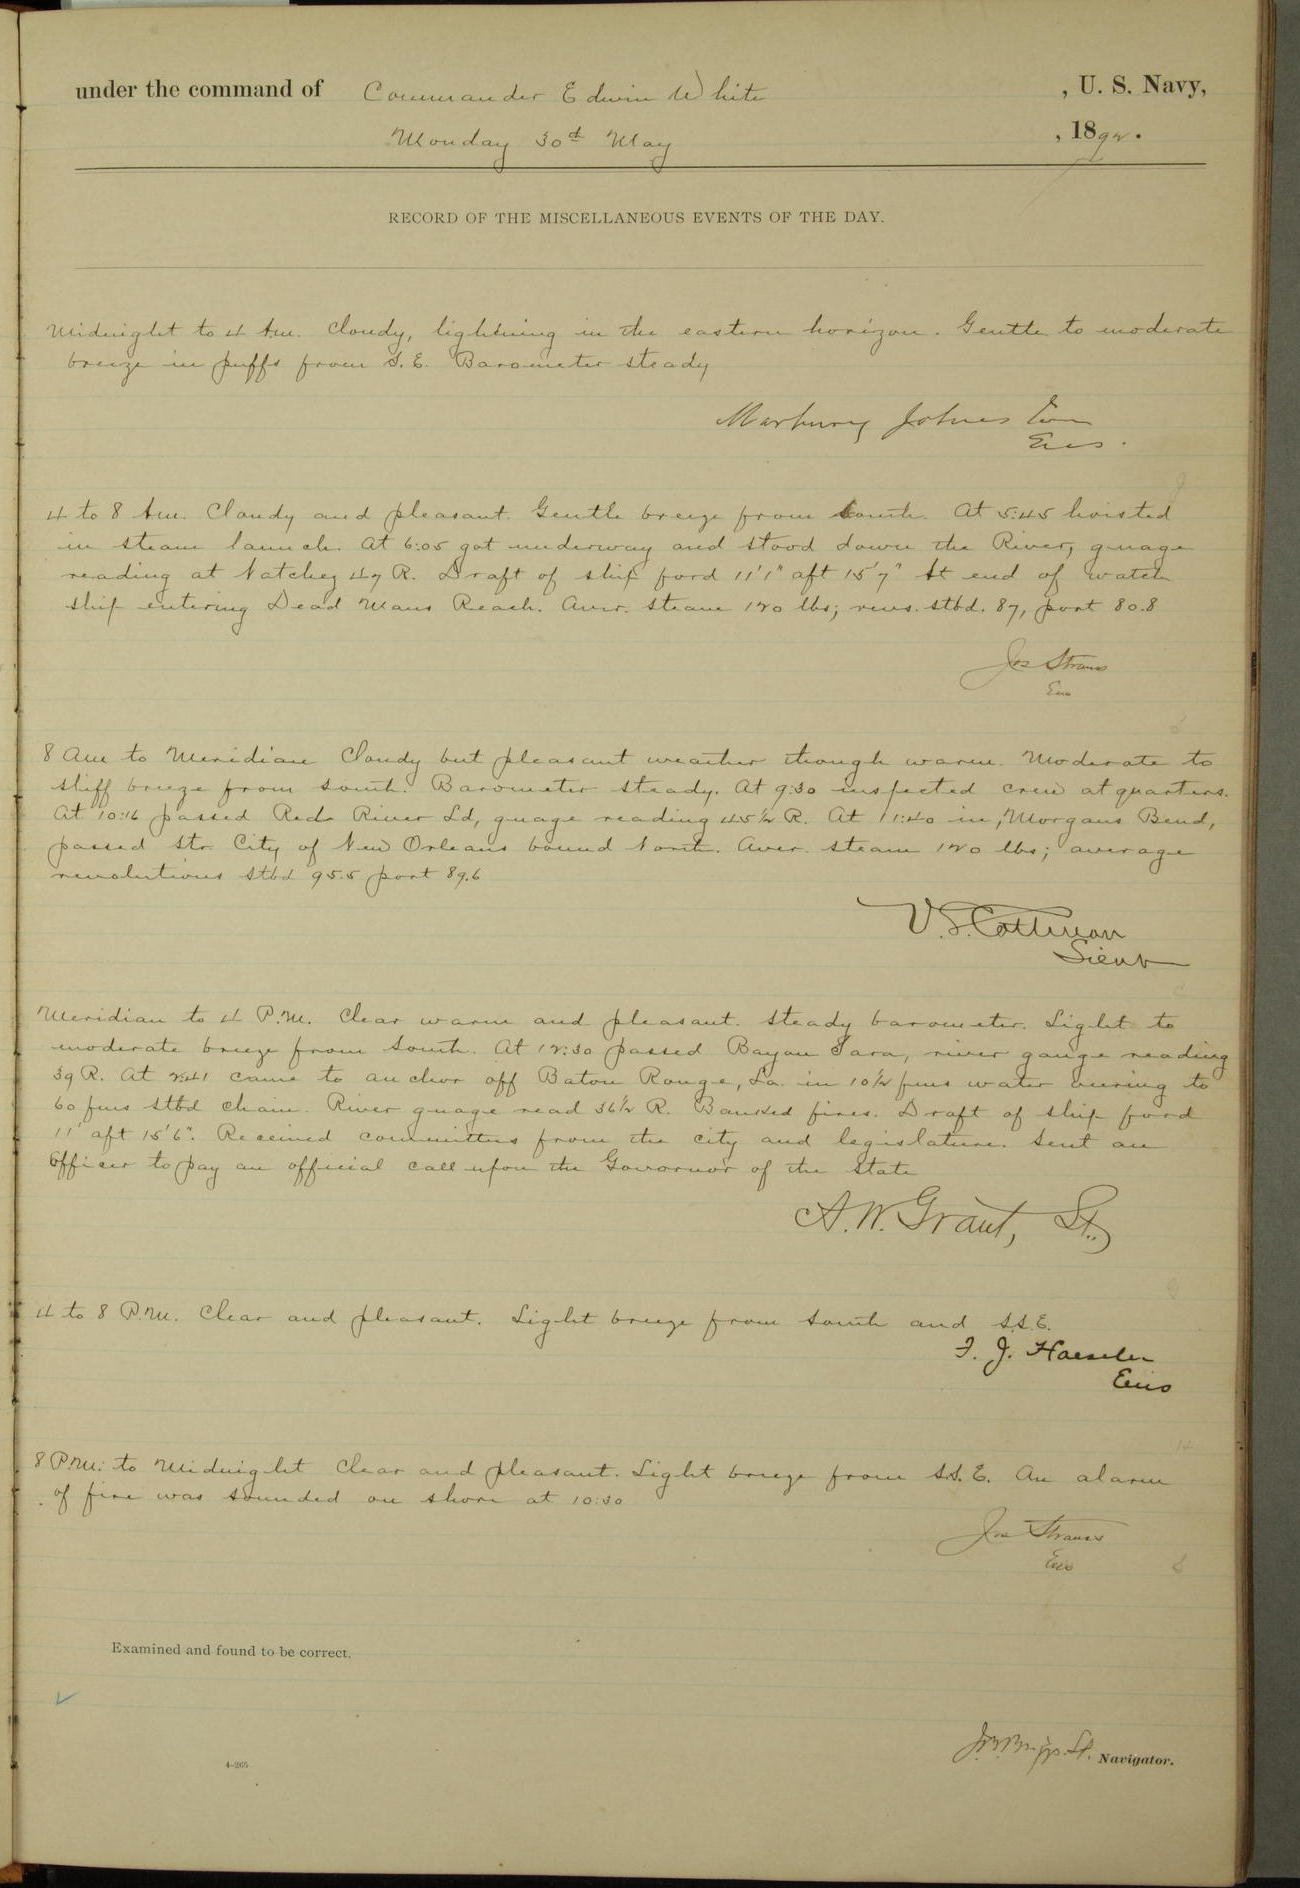 under the command of Commander Edwin White , U. S. Navy,
Monday 30th May , 1892.
RECORD OF THE MISCELLANEOUS EVENTS OF THE DAY.
Midnight to 4 Am. Cloudy, lightning in the eastern horizon. Gentle to moderate
breeze in puffs from S.E. Barometer steady
Marbury Johnston
Ens.
4 to 8 Am. Cloudy and pleasant. Gentle breeze from South. At 5:45 hoisted
in steam launch. At 6:05 got underway and stood down the River, guage
reading at Natchez 47 R. Draft of ship ford 11'1" aft 15'7" At end of watch
ship entering Dead Mans Reach. Aver. steam 120 lbs; revs. stbd. 87, port 80.8
Jos Strauss
Ens
8 Am to Meridian Cloudy but pleasant weather though warm. Moderate to
stiff breeze from South. Barometer steady. At 9:30 inspected crew at quarters.
At 10:16 passed Red River Ld, guage reading 45½ R. At 11:40 in, Morgans Bend,
passed Str City of New Orleans bound North. Aver. steam 120 lbs; average
revolutions stbd 95.5 port 89.6
V. S. Cottman
Lieut
Meridian to 4 P.M. Clear warm and pleasant. Steady barometer. Light to
moderate breeze from South. At 12:30 passed Bayou Sara, river gauge reading
39 R. At 2:41 came to anchor off Baton Rouge, La. in 10½ fms water veering to
60 fms stbd chain. River guage read 36½ R. Banked fires. Draft of ship ford
11' aft 15'6". Received committees from the city and legislature. Sent an
Officer to pay an official call upon the Governor of the State
A. W. Grant, Lt.
4 to 8 P.M. Clear and pleasant. Light breeze from South and S.S.E.
F. J. Haeseler
Ens
8 P.M. to Midnight Clear and pleasant. Light breeze from S.S.E. An alarm
of fire was sounded on shore at 10:30
Jos Strauss
Ens
Examined and found to be correct.
Briggs Lt. Navigator.
4–265